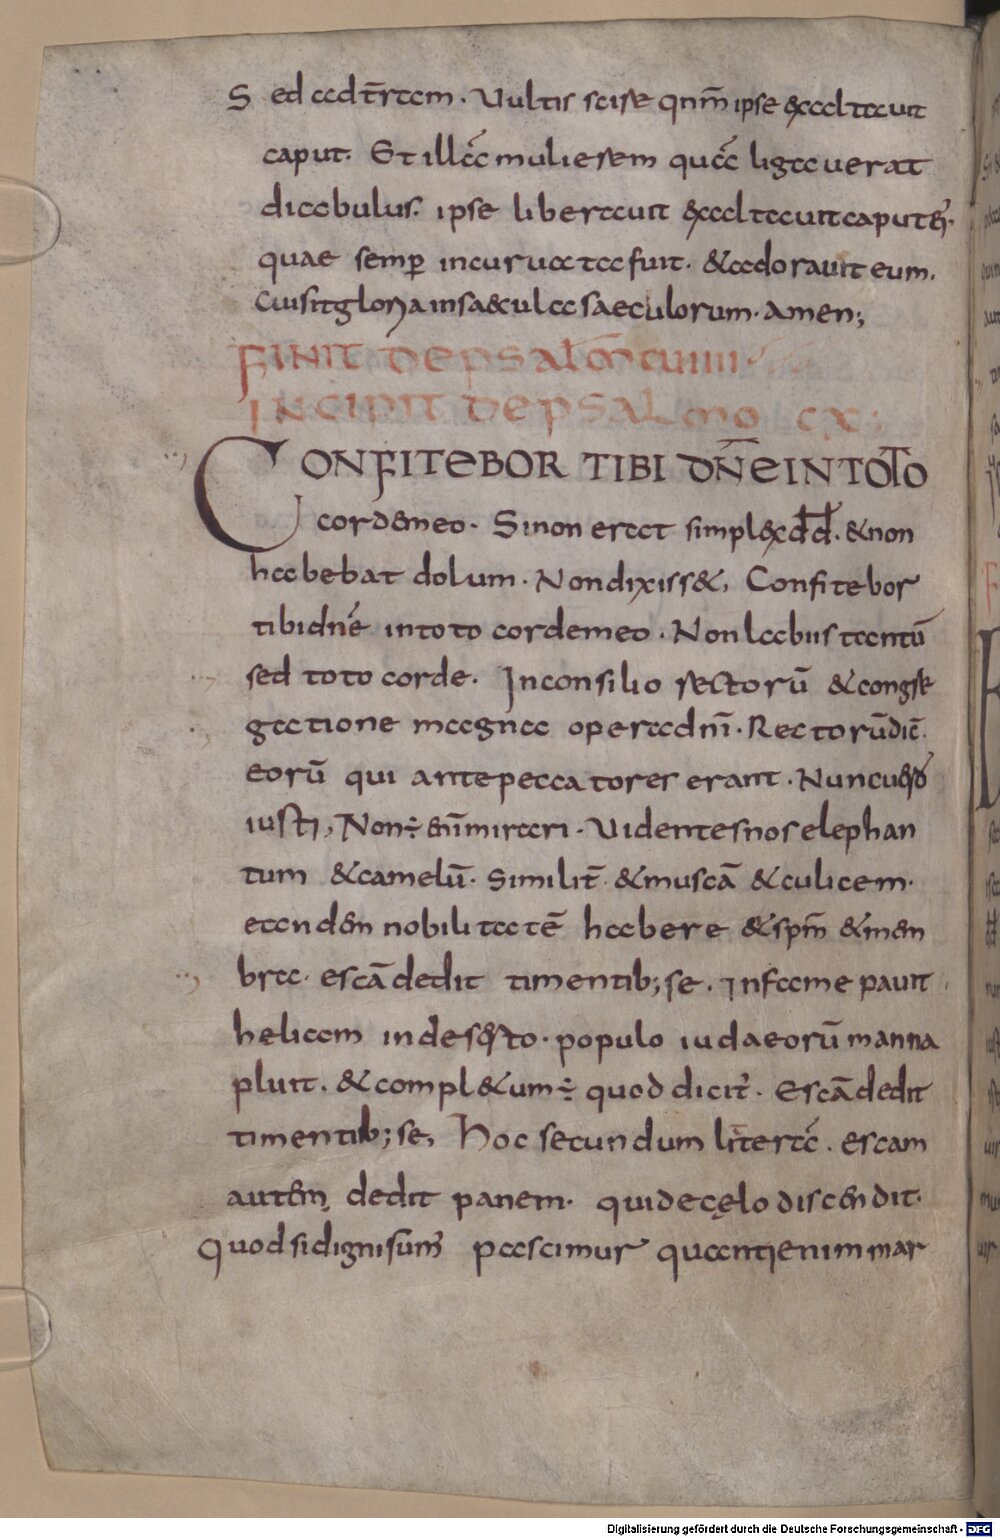 Sed ad tr̄ram. Vultis scire qnm̄ ipse exaltauit
caput. Et illā́ mulierem quā́ ligauerat
diabulus. ipse liberauit &exaltauit caput ei'.
quae semꝑ incuruata fuit. &adorauit eum.
Cui sit gloria insaecula saeculorum. Amen;
FINIT DE PSALMO CUIIII
INCIPIT DE PSALMO CX:
CONFITEBOR TIBI DN̄E IN TOTO
corde meo. Si non erat simplex dd. &non
habebat dolum. Non dixiss&, Confitebor
tibi dn̄e in toto corde meo. Non labiis tantū
sed toto corde. In consilio rectorū &congre
gatione magna opera dn̄i. Rectorū dic̄.
eorū qui ante peccatores erant. Nunc uero
iusti, Non ÷ enī mirari. Videntes nos elephan
tum &camelū. Similit̄. &muscā &culicem.
eandem nobilitatē habere &spm̄ &mem
bra. escā dedit timentib; se. Infame pauit
heliam in deserto. populo iudaeorū manna
pluit. &compl&um ÷ quod dicit'. Escā dedit
timentib; se, Hoc secundum litterā́. escam
autem, dedit panem. qui de cęlo discendit.
Quod si digni sum' pascimur quanti enim mar
Digitalisierung gefördert durch die Deutsche Forschungsgemeinschaft - DFG